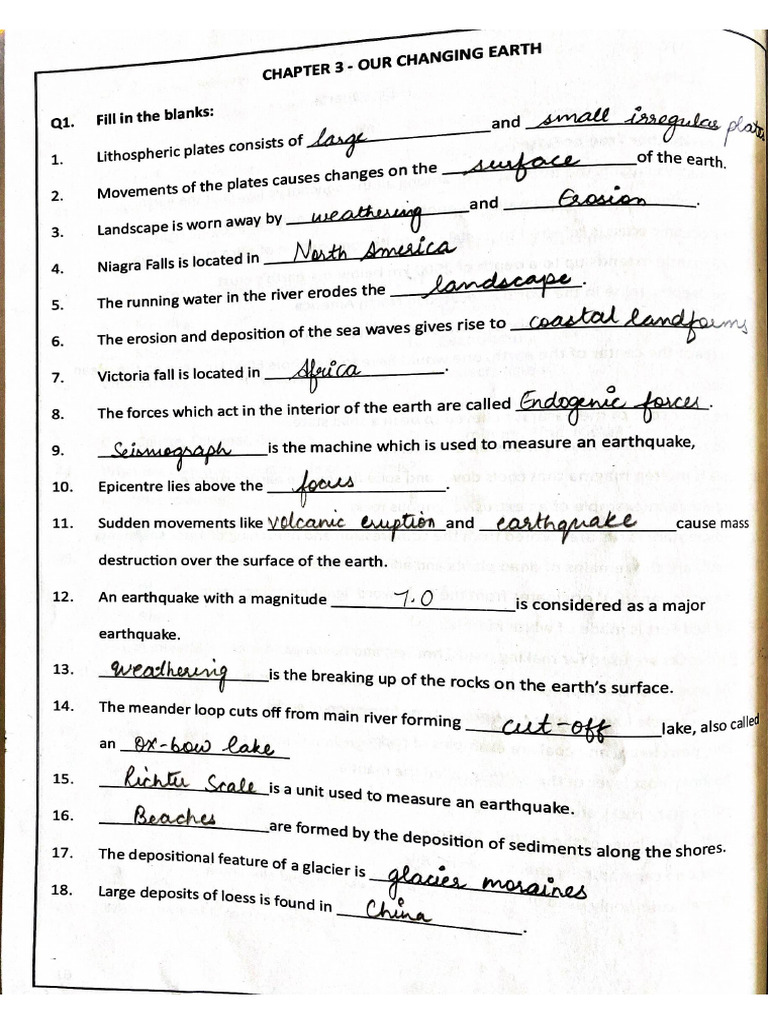 CHAPTER 3 - OUR CHANGING EARTH
Q1. Fill in the blanks:
1. Lithospheric plates consists of large and small irregular plates
2. Movements of the plates causes changes on the surface of the earth.
3. Landscape is worn away by weathering and Erosion.
4. Niagra Falls is located in North America
5. The running water in the river erodes the landscape.
6. The erosion and deposition of the sea waves gives rise to coastal landforms
7. Victoria fall is located in Africa.
8. The forces which act in the interior of the earth are called Endogenic forces.
9. Seismograph is the machine which is used to measure an earthquake,
10. Epicentre lies above the focus.
11. Sudden movements like volcanic eruption and earthquake cause mass
destruction over the surface of the earth.
12. An earthquake with a magnitude 7.0 is considered as a major
earthquake.
13. Weathering is the breaking up of the rocks on the earth's surface.
14. The meander loop cuts off from main river forming cut-off lake, also called
an Ox-bow lake
15. Richter Scale is a unit used to measure an earthquake.
16. Beaches are formed by the deposition of sediments along the shores.
17. The depositional feature of a glacier is glacier moraines
18. Large deposits of loess is found in China.